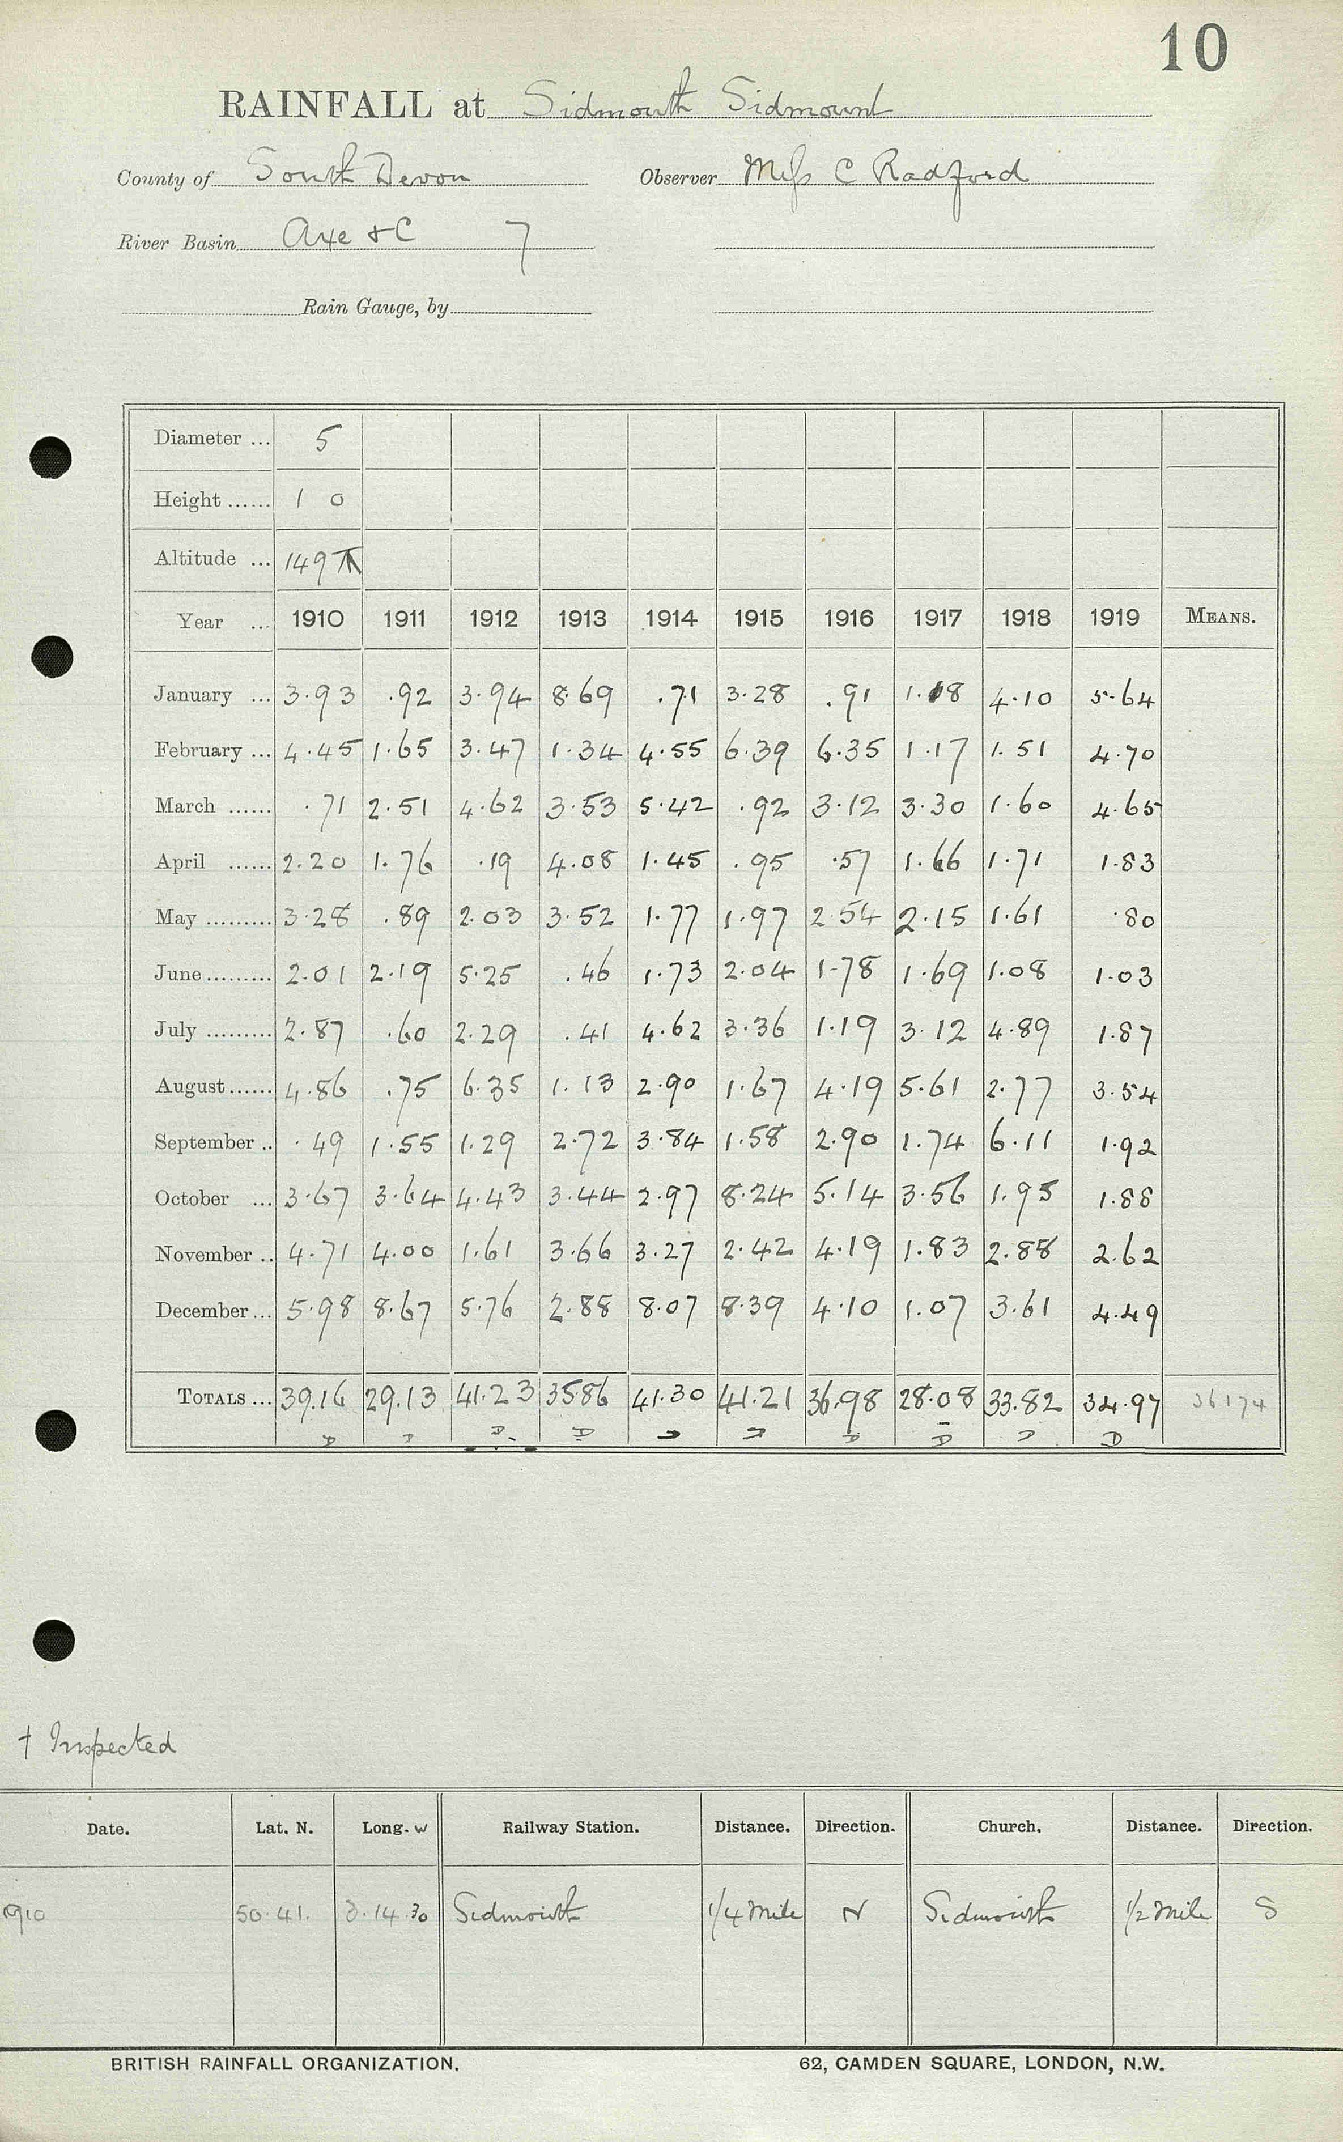 10
RAINFALL at Sidmouth Sidmount
County of South Devon Observer Miss C Radford
River Basin Axe &C 7
Rain Gauge, by
Diameter ... 5
Height ...... 1 0
Altitude ... 149
Year ... 1910 1911 1912 1913 1914 1915 1916 1917 1918 1919 MEANS.
January ... 3.93 .92 3.94 8.69 .71 3.28 .91 1.18 4.10 5.64
February ... 4.45 1.65 3.47 1.34 4.55 6.39 6.35 1.17 1.51 4.70
March ...... .71 2.51 4.62 3.53 5.42 .92 3.12 3.30 1.60 4.65
April ...... 2.20 1.76 .19 4.08 1.45 .95 .57 1.66 1.71 1.83
May ......... 3.28 .89 2.03 3.52 1.77 1.97 2.54 2.15 1.61 .80
June ......... 2.01 2.19 5.25 .46 1.73 2.04 1.78 1.69 1.08 1.03
July ......... 2.87 .60 2.29 .41 4.62 3.36 1.19 3.12 4.89 1.87
August ...... 4.86 .75 6.35 1.13 2.90 1.67 4.19 5.61 2.77 3.54
September .. .49 1.55 1.29 2.72 3.84 1.58 2.90 1.74 6.11 1.92
October ... 3.67 3.64 4.43 3.44 2.97 8.24 5.14 3.56 1.95 1.88
November .. 4.71 4.00 1.61 3.66 3.27 2.42 4.19 1.83 2.88 2.62
December ... 5.98 8.67 5.76 2.88 8.07 8.39 4.10 1.07 3.61 4.49
TOTALS ... 39.16 29.13 41.23 35.86 41.30 41.21 36.98 28.08 33.82 34.97 36174
† Inspected
Date. Lat. N. Long. W Railway Station. Distance. Direction. Church. Distance. Direction.
1910 50.41. 3.14.30 Sidmouth 1/4 mile N Sidmouth 1/2 mile S
BRITISH RAINFALL ORGANIZATION. 62, CAMDEN SQUARE, LONDON, N.W.